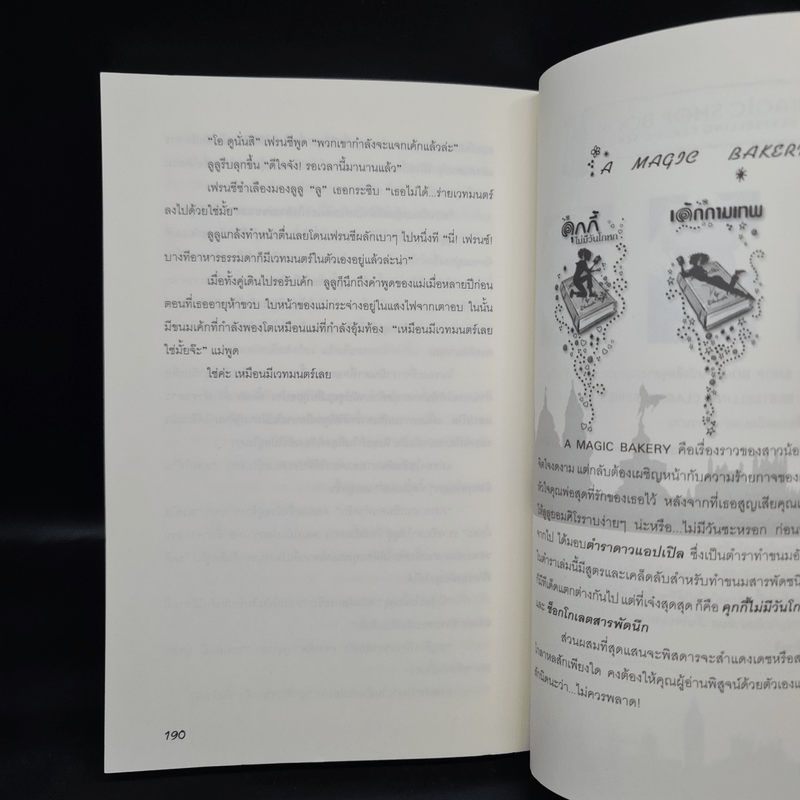 “โอ ดูนั่นสิ” เฟรนซีพูด “พวกเขากำลังจะแจกเค้กแล้วล่ะ”
ลูลูรีบลุกขึ้น “ดีใจจัง! รอเวลานี้มานานแล้ว”
เฟรนซีชำเลืองมองลูลู “ลู” เธอกระซิบ “เธอไม่ได้...ร่ายเวทมนตร์
ลงไปด้วยใช่มั้ย”
ลูลูแกล้งทำหน้าตื่นเลยโดนเฟรนซีผลักเบาๆ ไปหนึ่งที “นี่! เฟรนซ์!
บางทีอาหารธรรมดาก็มีเวทมนตร์ในตัวเองอยู่แล้วล่ะน่า”
เมื่อทั้งคู่เดินไปรอรับเค้ก ลูลูก็นึกถึงคำพูดของแม่เมื่อหลายปีก่อน
ตอนที่เธออายุห้าขวบ ใบหน้าของแม่กระจ่างอยู่ในแสงไฟจากเตาอบ ในนั้น
มีขนมเค้กที่กำลังพองโตเหมือนแม่ที่กำลังอุ้มท้อง “เหมือนมีเวทมนตร์เลย
ใช่มั้ยจ๊ะ” แม่พูด
ใช่ค่ะ เหมือนมีเวทมนตร์เลย
190
A MAGIC BAKERY
คุกกี้
ไม่มีวันโกหก
เค้กกามเทพ
A MAGIC BAKERY คือเรื่องราวของสาวน้อ
จิตใจงดงาม แต่กลับต้องเผชิญหน้ากับความร้ายกาจของ
หัวใจคุณพ่อสุดที่รักของเธอไว้ หลังจากที่เธอสูญเสียคุณ
ให้ลูลูยอมศิโรราบง่ายๆ น่ะหรือ...ไม่มีวันซะหรอก ก่อน
จากไป ได้มอบตำราดาวแอปเปิล ซึ่งเป็นตำราทำขนม
ในตำราเล่มนี้มีสูตรและเคล็ดลับสำหรับทำขนมสารพัดชนิ
ก็มีทีเด็ดแตกต่างกันไป แต่ที่เจ๋งสุดสุด ก็คือ คุกกี้ไม่มีวันโก
และ ช็อกโกเลตสารพัดนึก
ส่วนผสมที่สุดแสนจะพิสดารจะสำแดงเดชหรือส
โกลาหลสักเพียงใด คงต้องให้คุณผู้อ่านพิสูจน์ด้วยตัวเอง
นิดนะว่า...ไม่ควรพลาด!